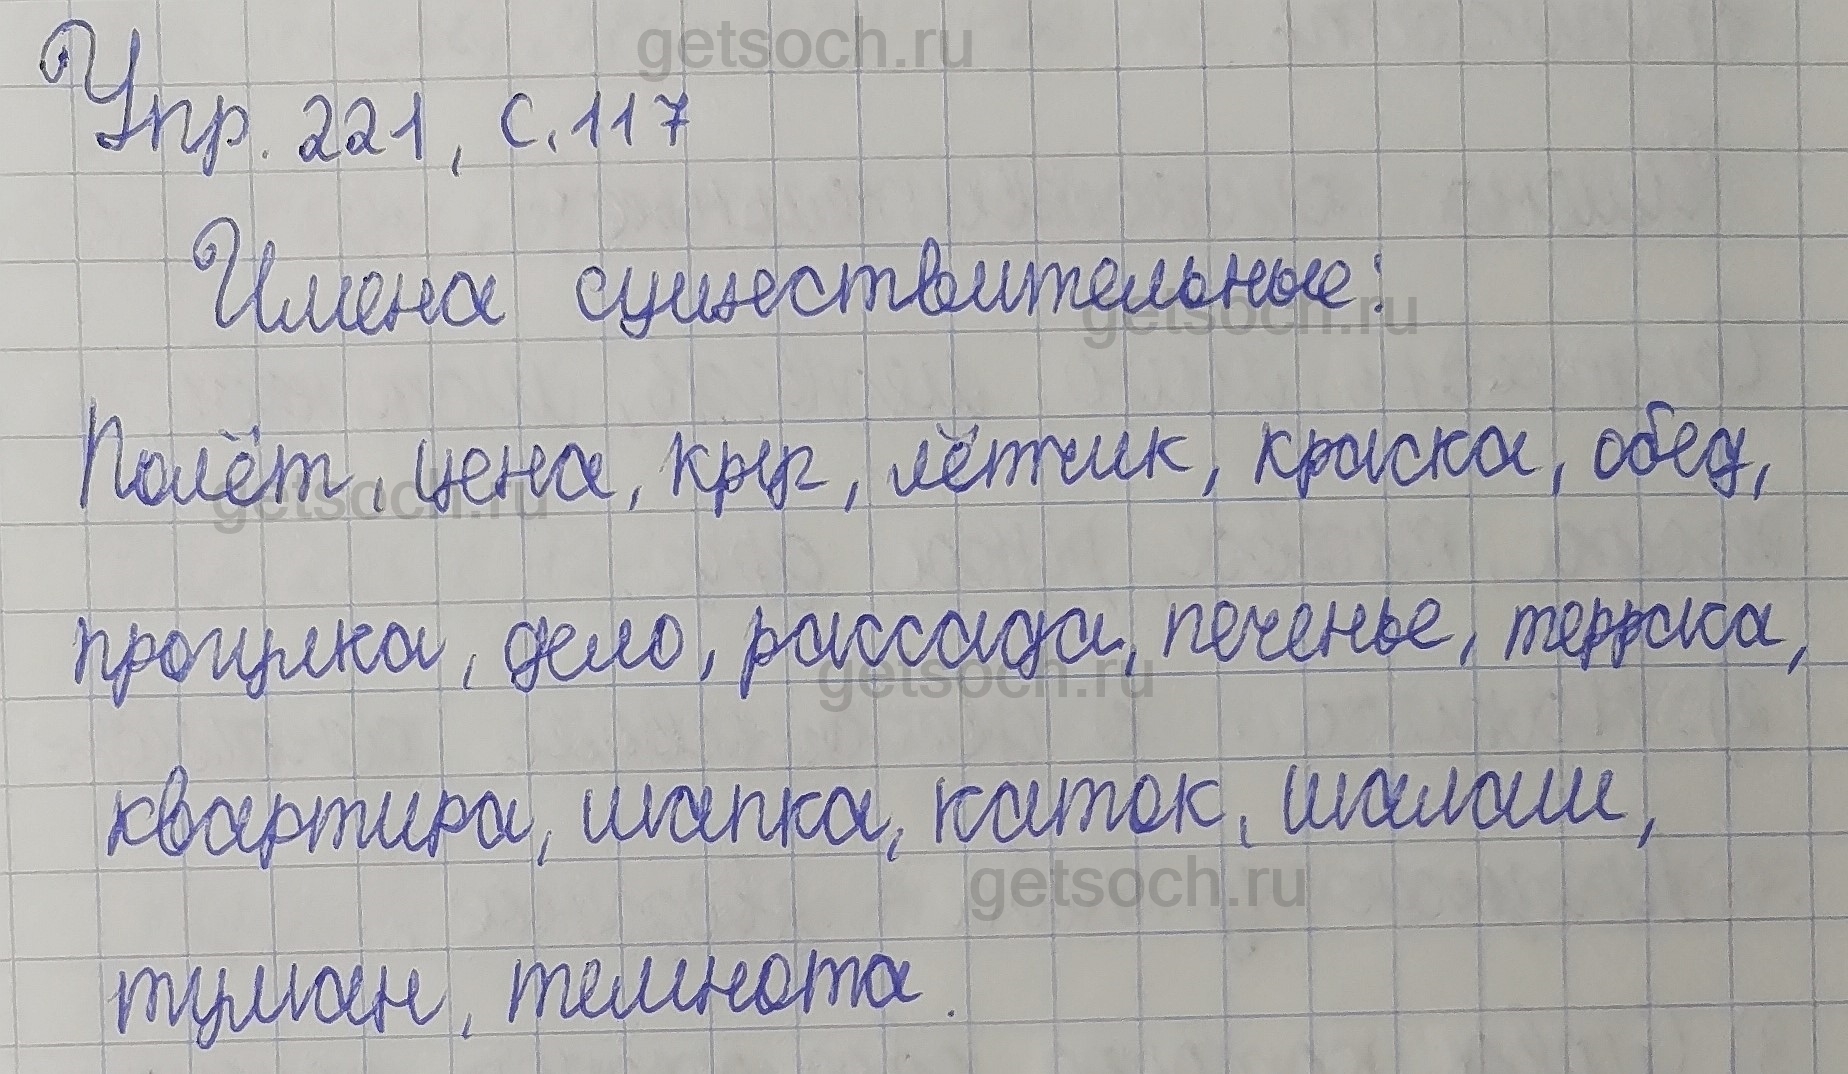 getsoch.ru
Упр. 221, с. 117
Имена существительные:
getsoch.ru
Полёт, цена, круг, лётчик, краска, обед,
getsoch.ru
прогулка, дело, рассада, печенье, терраса,
getsoch.ru
квартира, шапка, каток, шалаш,
getsoch.ru
туман, темнота.